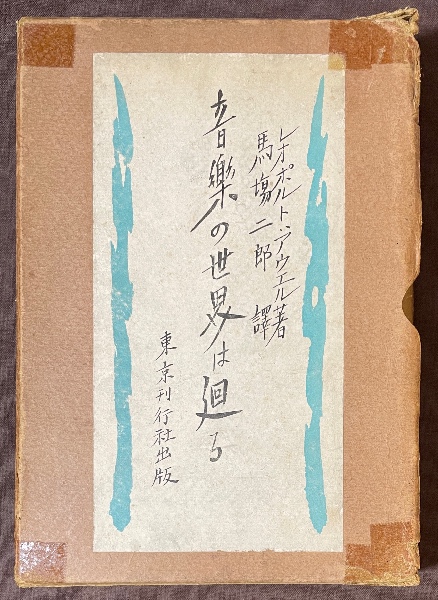 レオポルト・アウエル著
馬塲二郎 譯
音樂の世界は廻る
東京刊行社出版